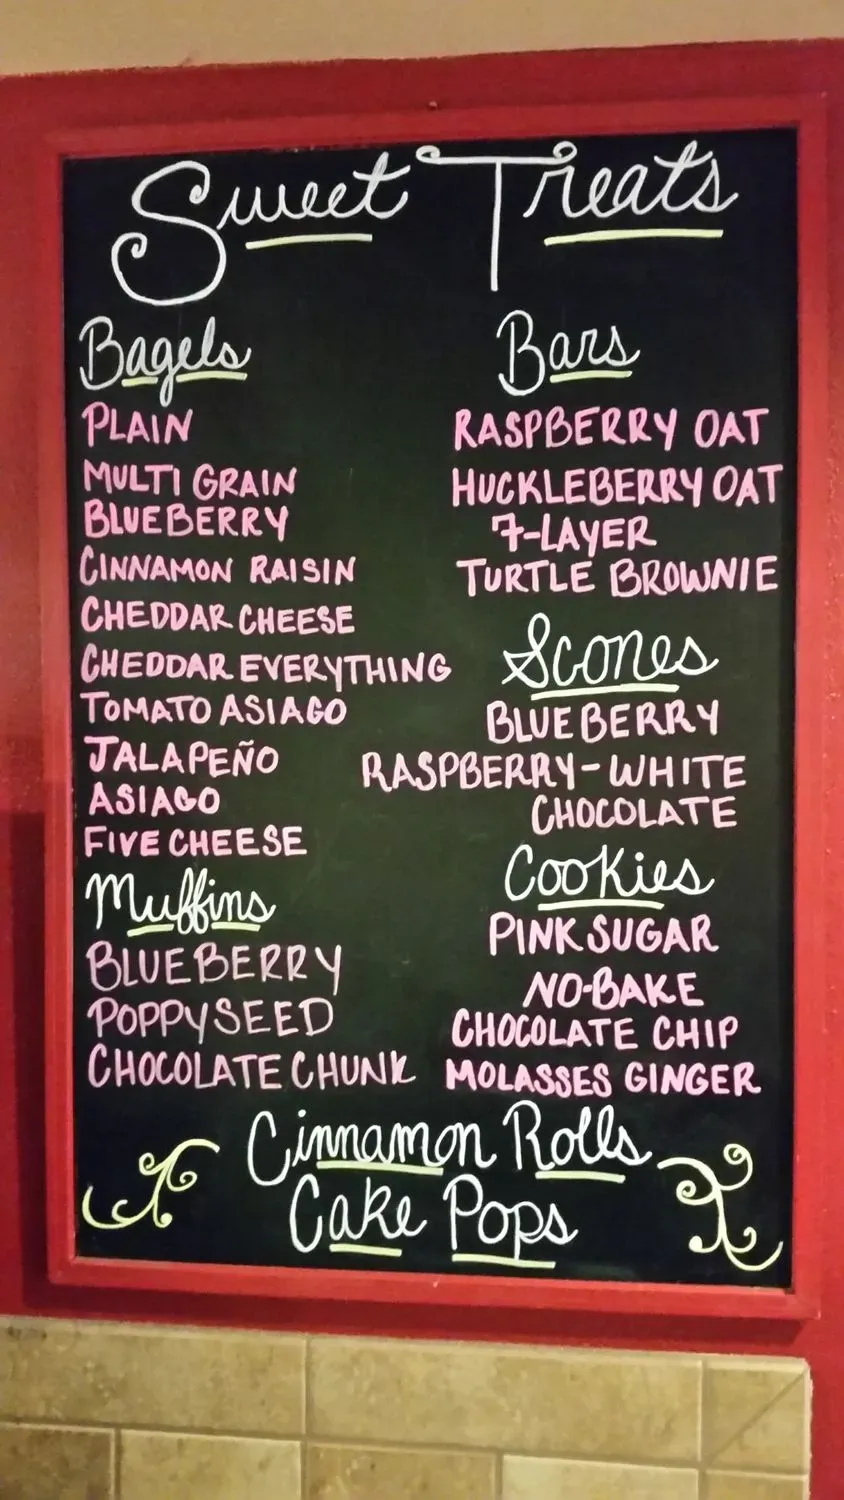 Sweet Treats
Bagels
PLAIN
MULTI GRAIN
BLUEBERRY
CINNAMON RAISIN
CHEDDAR CHEESE
CHEDDAR EVERYTHING
TOMATO ASIAGO
JALAPEÑO
ASIAGO
FIVE CHEESE
Muffins
BLUEBERRY
POPPYSEED
CHOCOLATE CHUNK
Bars
RASPBERRY OAT
HUCKLEBERRY OAT
7-LAYER
TURTLE BROWNIE
Scones
BLUEBERRY
RASPBERRY-WHITE
CHOCOLATE
Cookies
PINK SUGAR
NO-BAKE
CHOCOLATE CHIP
MOLASSES GINGER
Cinnamon Rolls
Cake Pops